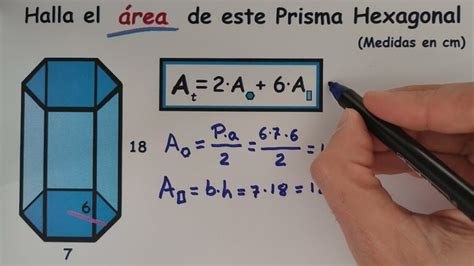 Halla el área de este Prisma Hexagonal
(Medidas en cm)
At = 2·A⬡ + 6·A▯
18
A⬡ = P.a/2 = 6·7·6/2 =
A▯ = b·h = 7·18 =
6
7